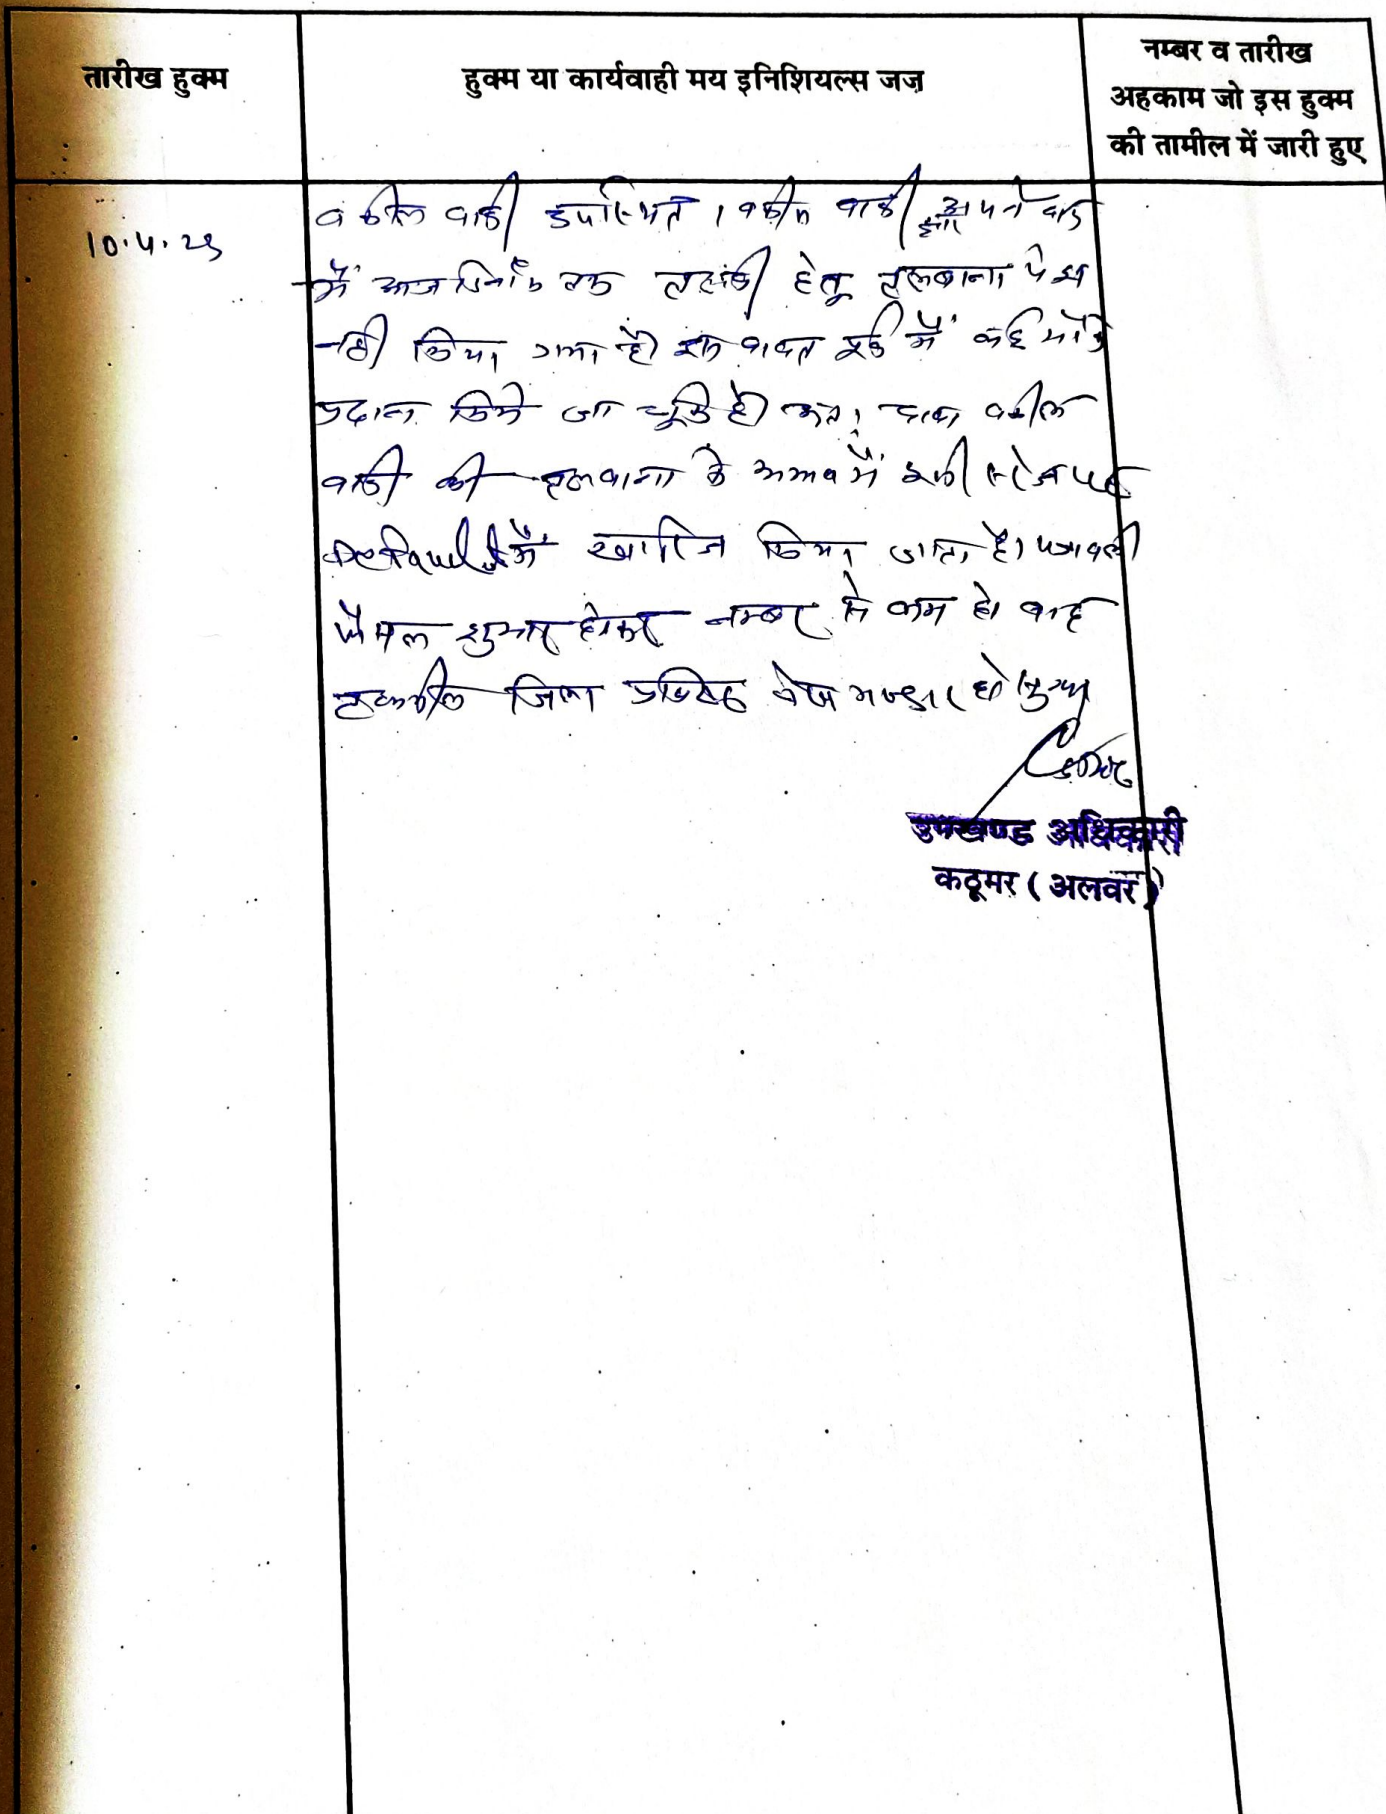 तारीख हुक्म
हुक्म या कार्यवाही मय इनिशियल्स जज
नम्बर व तारीख
अहकाम जो इस हुक्म
की तामील में जारी हुए
10.4.23
वकील वादी उपस्थित । वकील वादी द्वारा अपने वाद
में आज दिनांक तक तलबी हेतु तलबाना पेश
नही किया गया है। इस बाबत पूर्व में कई मौके
प्रदान किये जा चुके है। अतः वाद वकील
वादी की तलवाना के अभाव में इसी स्टेज पर
में खारिज किया जाता है। पत्रावली
फैसल शुमार होकर नम्बर से कम हो बाद
तकमील जिला अभिलेख भण्डार हो
उपखण्ड अधिकारी
कठूमर ( अलवर )